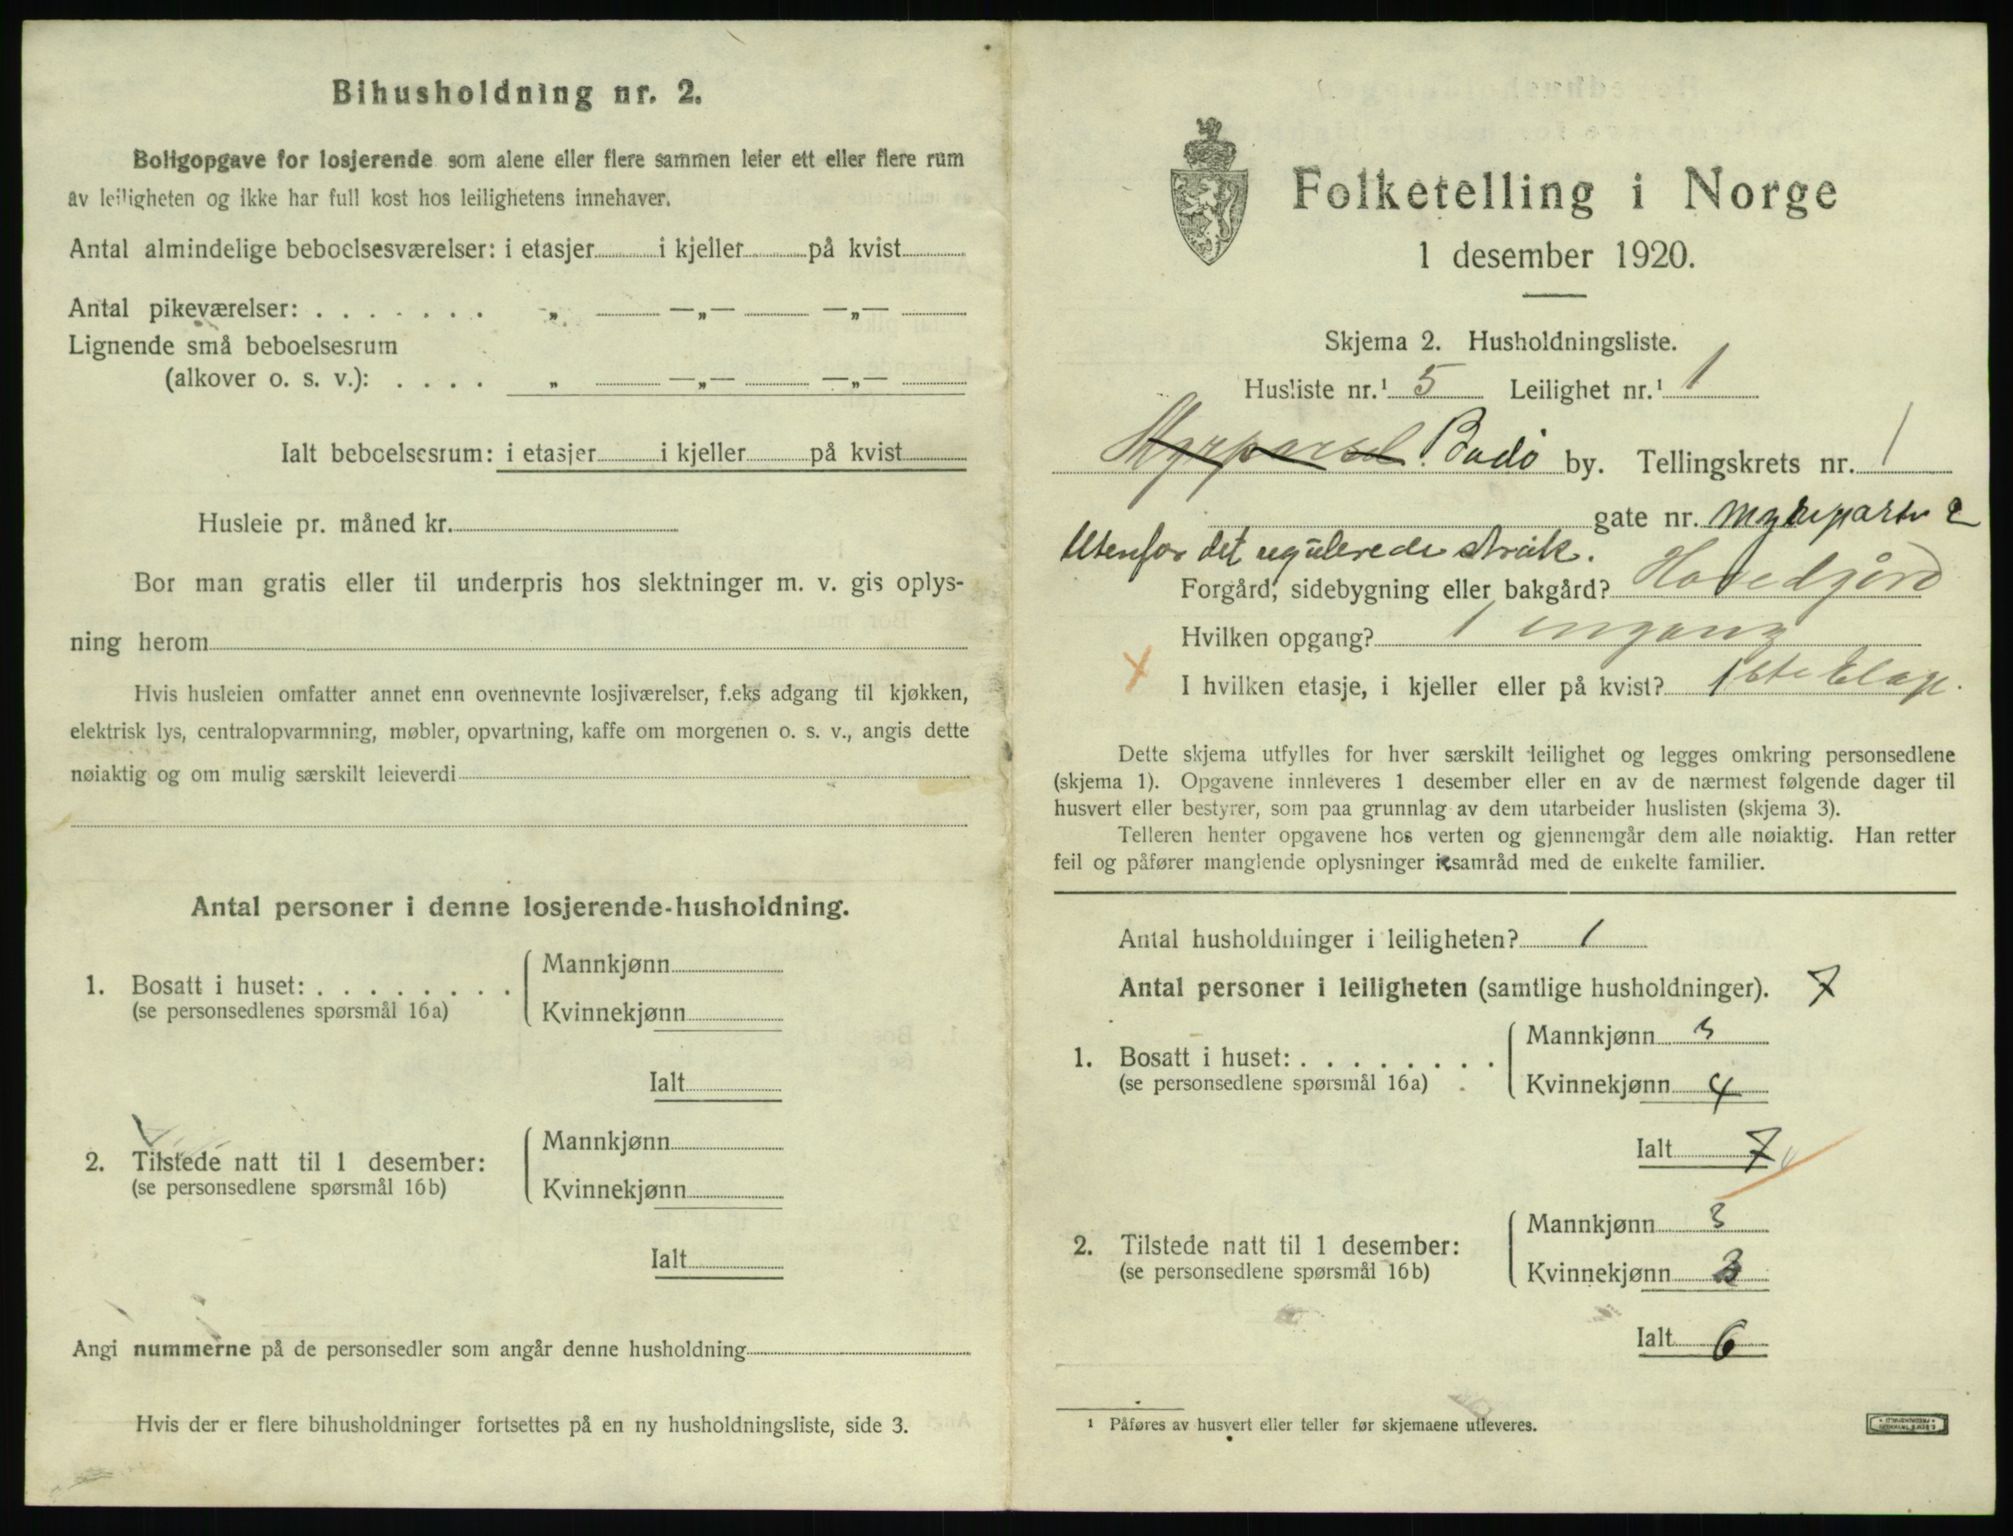 Bihusholdning nr. 2.
Boligopgave for losjerende som alene eller flere sammen leier ett eller flere rum
av leiligheten og ikke har full kost hos leilighetens innehaver.
Antal almindelige beboelsesværelser: i etasjer i kjeller på kvist
Antal pikeværelser: . . . . . . . „ —„— —„—
Lignende små beboelsesrum
(alkover o. s. v.): . . . . „ —„— —„—
Ialt beboelsesrum: i etasjer i kjeller på kvist
Husleie pr. måned kr.
Bor man gratis eller til underpris hos slektninger m. v. gis oplys-
ning herom
Hvis husleien omfatter annet enn ovennevnte losjiværelser, f.eks adgang til kjøkken,
elektrisk lys, centralopvarmning, møbler, opvartning, kaffe om morgenen o. s. v., angis dette
nøiaktig og om mulig særskilt leieverdi
Antal personer i denne losjerende-husholdning.
1. Bosatt i huset: . . . . . . . .
(se personsedlenes spørsmål 16a)
Mannkjønn
Kvinnekjønn
Ialt
2. Tilstede natt til 1 desember:
(se personsedlene spørsmål 16b)
Mannkjønn
Kvinnekjønn
Ialt
Angi nummerne på de personsedler som angår denne husholdning
Hvis der er flere bihusholdninger fortsettes på en ny husholdningsliste, side 3.
Folketelling i Norge
1 desember 1920.
Skjema 2. Husholdningsliste.
Husliste nr.¹ 5 Leilighet nr.¹ 1
Bodø by. Tellingskrets nr. 1
gate nr. 2
Utenfor det regulerede strøk.
Forgård, sidebygning eller bakgård? Hovedgård
Hvilken opgang? 1 ingang
I hvilken etasje, i kjeller eller på kvist? 1ste Etage.
Dette skjema utfylles for hver særskilt leilighet og legges omkring personsedlene
(skjema 1). Opgavene innleveres 1 desember eller en av de nærmest følgende dager til
husvert eller bestyrer, som paa grunnlag av dem utarbeider huslisten (skjema 3).
Telleren henter opgavene hos verten og gjennemgår dem alle nøiaktig. Han retter
feil og påfører manglende oplysninger i samråd med de enkelte familier.
Antal husholdninger i leiligheten? 1
Antal personer i leiligheten (samtlige husholdninger). 7
1. Bosatt i huset: . . . . . . . .
(se personsedlene spørsmål 16a)
Mannkjønn 3
Kvinnekjønn 4
Ialt 7
2. Tilstede natt til 1 desember:
(se personsedlene spørsmål 16b)
Mannkjønn 3
Kvinnekjønn 3
Ialt 6
¹ Påføres av husvert eller teller før skjemaene utleveres.